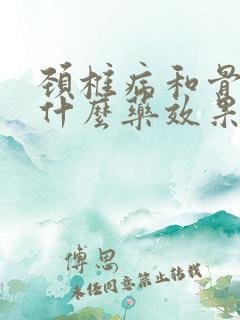 颈椎病和骨
什麽药效果
傅思
未经同意禁止转载